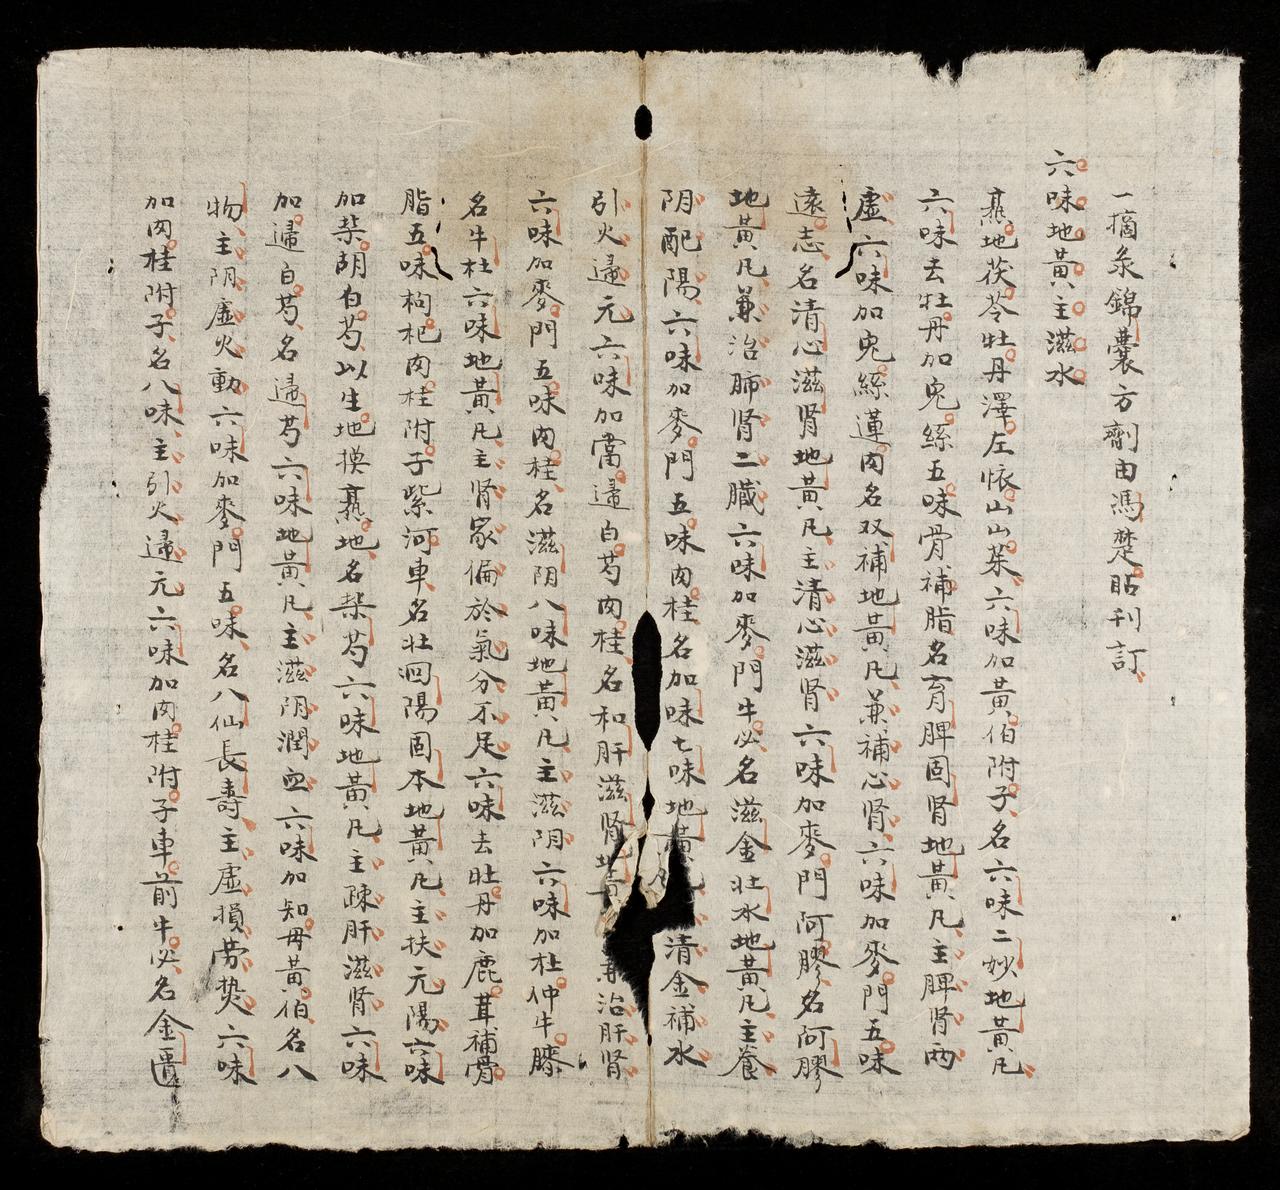 一摘錄錦囊方劑由馮楚貼刊訂
六味地黃主滋水
熟地茯苓牡丹澤左懷山山茱六味加黃伯附子名六味二妙地黃凡
六味去牡丹加兔絲五味骨補脂名育脾固肾地黃凡主脾肾両
虛六味加兔絲蓮肉名双補地黃凡兼補心肾六味加麥門五味
遠志名清心滋肾地黃凡主清心滋肾六味加麥門阿膠名阿膠
地黃凡兼治肺肾二臟六味加麥門牛必名滋金壮水地黃凡主養
阴配陽六味加麥門五味肉桂名加味七味地黃 清金補水
引火归元六味加當归白芍肉桂名和肝滋肾地黃 兼治肝肾
六味加麥門五味肉桂名滋阴八味地黃凡主滋阴六味加杜仲牛膝
名牛杜六味地黃凡主肾家偏於氣分不足六味去牡丹加鹿茸補骨
脂五味枸杞肉桂附子紫河車名壮囬陽固本地黃凡主扶元陽六味
加柴胡白芍以生地換熟地名柴芍六味地黃凡主疎肝滋肾六味
加归白芍名归芍六味地黃凡主滋阴潤血六味加知母黃伯名八
物主阴虛火動六味加麥門五味名八仙長壽主虛損劳热六味
加肉桂附子名八味主引火归元六味加肉桂附子車前牛必名金匱